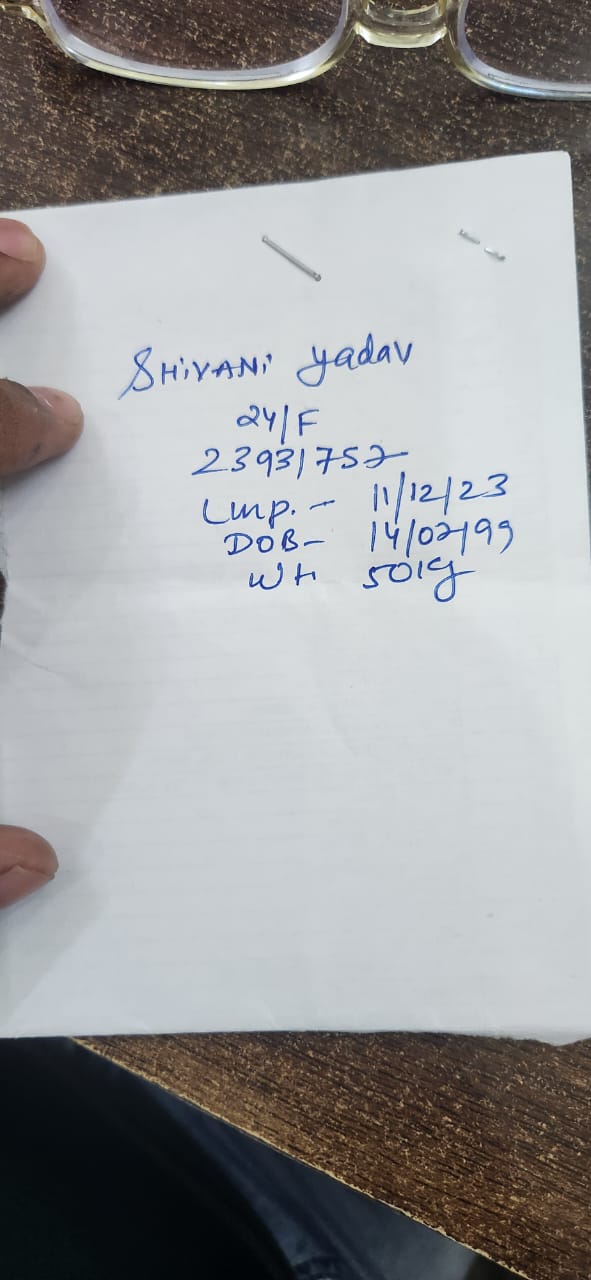 SHIVANI yadav
24/F
23931752
Lmp. - 11/12/23
DOB- 14/02/99
Wt 50kg